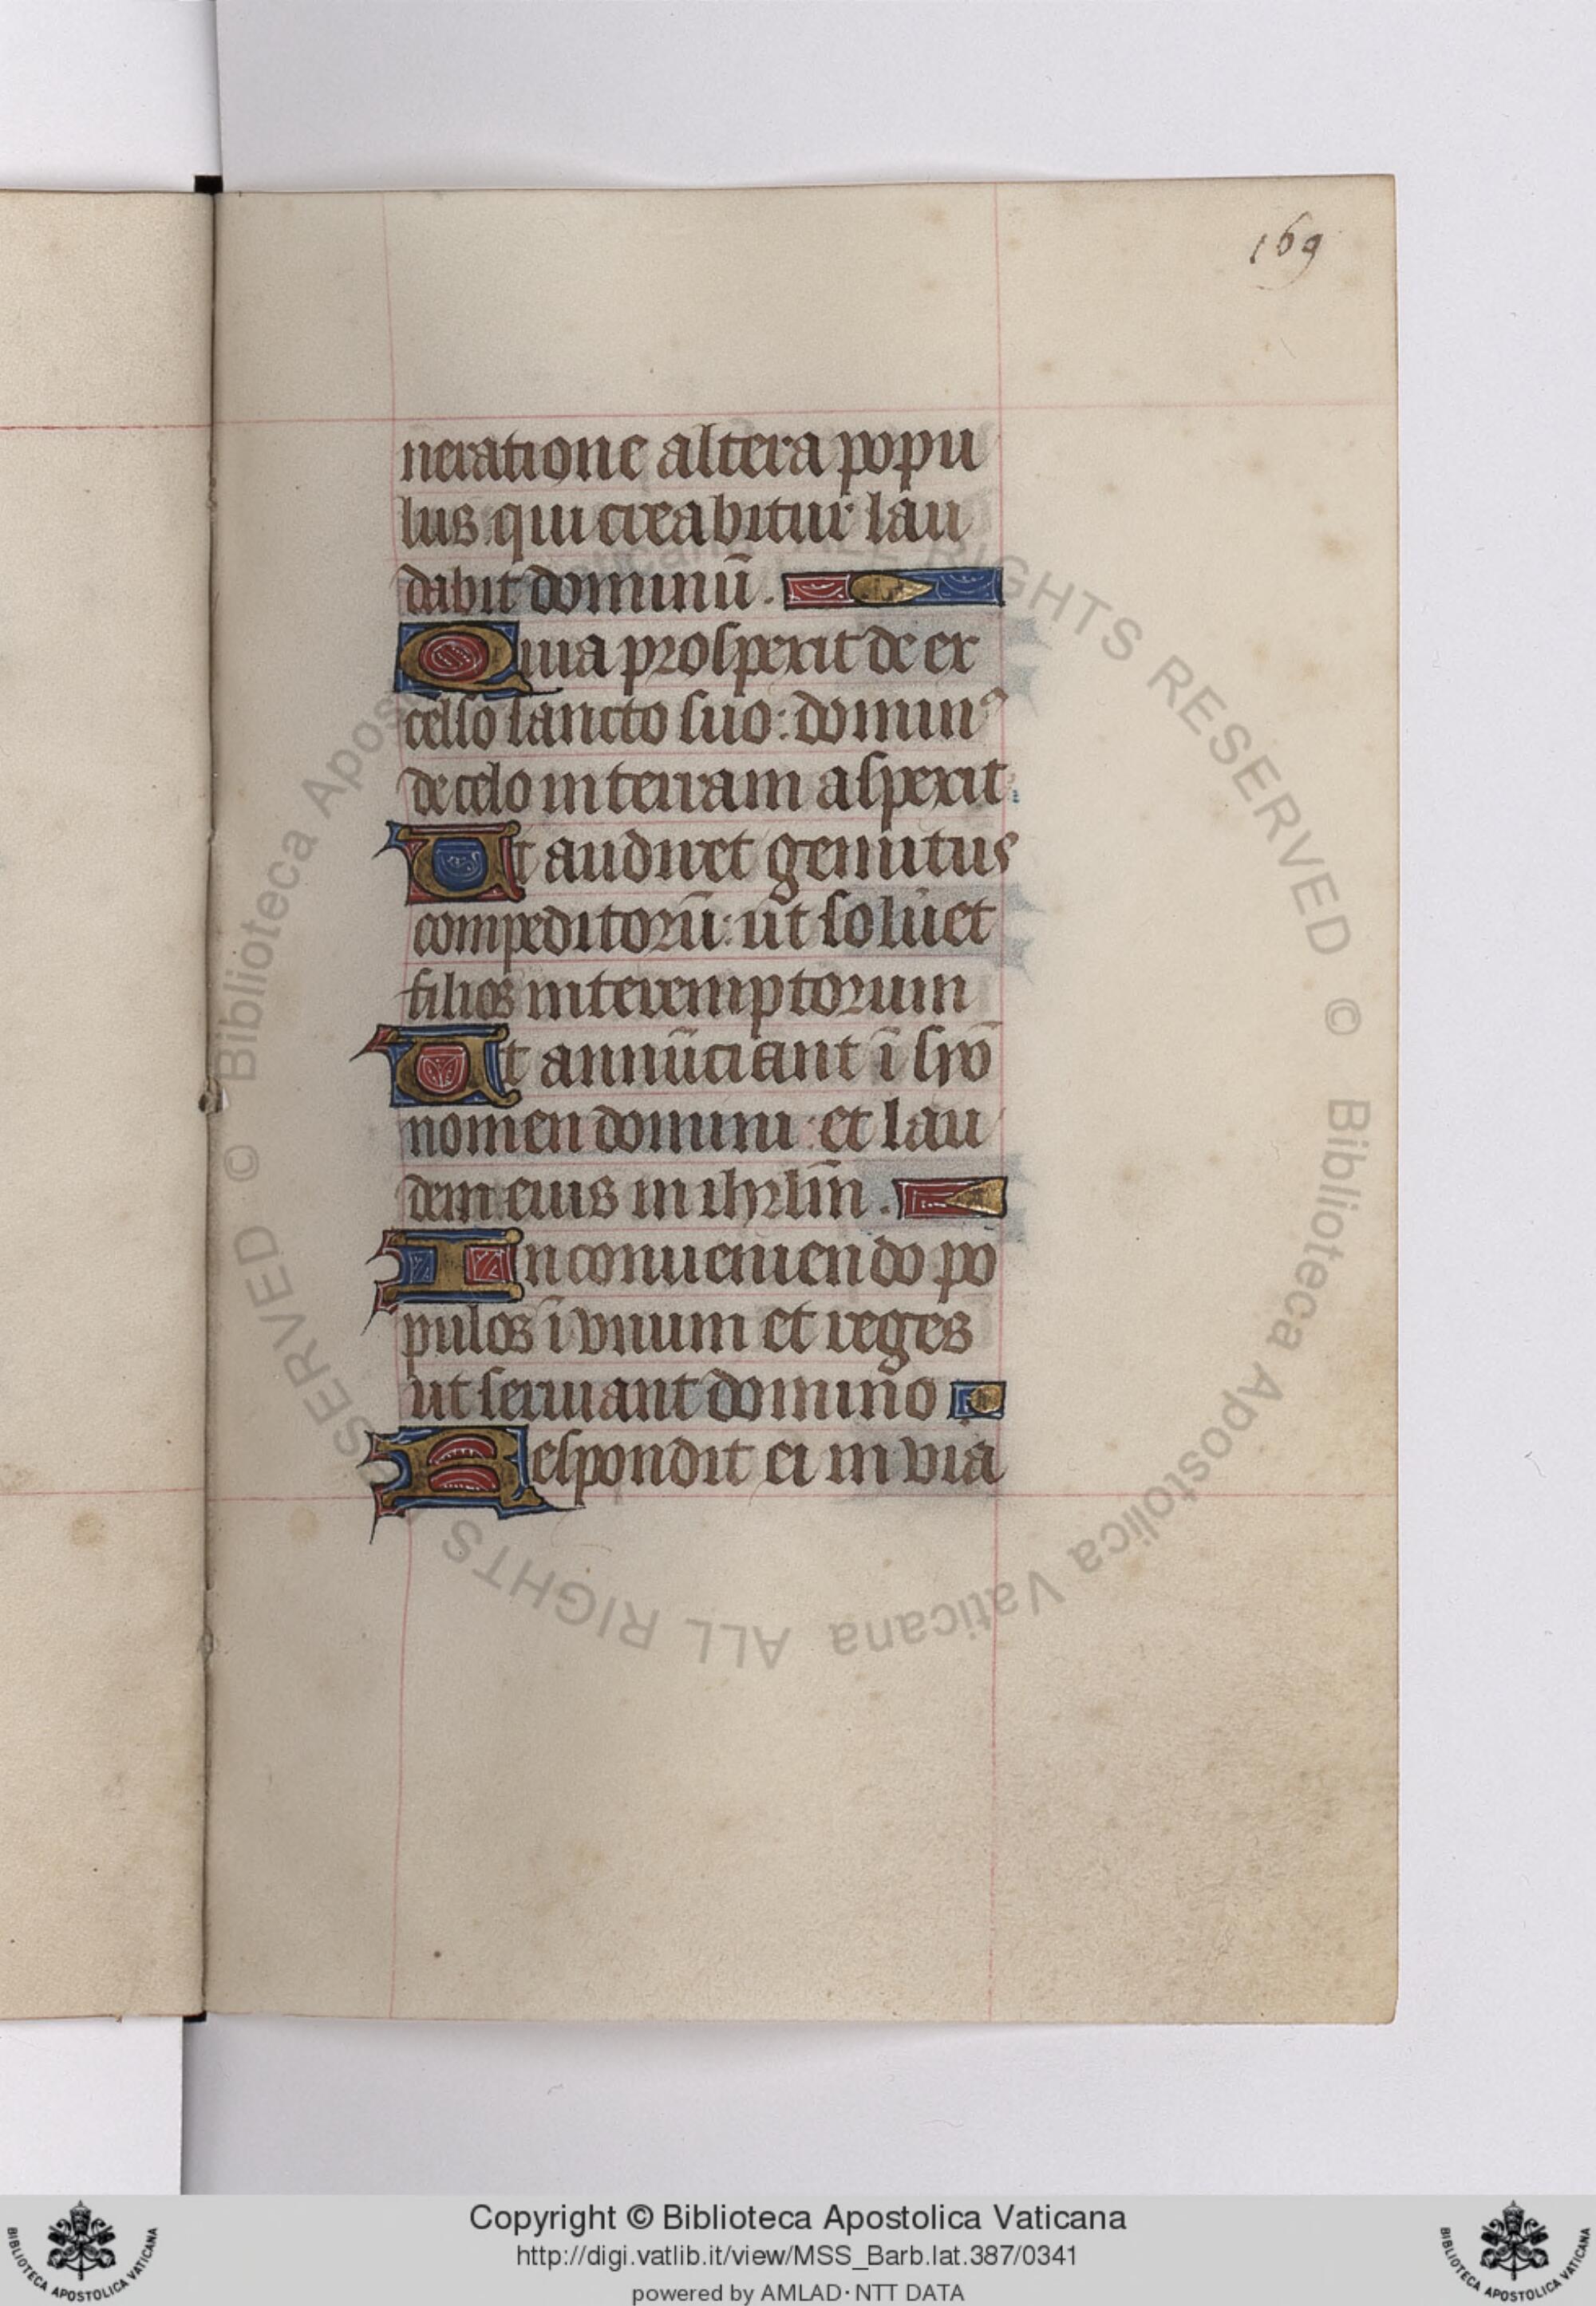 169
neratione altera popu
lus qui creabitur lau
dabit dominū.
Quia prospexit de ex
celso sancto suo: dominꝰ
de celo in terram aspexit:
Ut audiret gemitus
compeditorū: ut soluet
filios interemptorum
Ut annūciant ī syō
nomen domini: et lau
dem eius in ihrlm̄.
In conueniendo po
pulos ī vnum et reges
ut seruiant domino
Respondit ei in via
© Biblioteca Apostolica Vaticana ALL RIGHTS RESERVED © Biblioteca Apostolica Vaticana ALL RIGHTS RESERVED
Copyright © Biblioteca Apostolica Vaticana
http://digi.vatlib.it/view/MSS_Barb.lat.387/0341
powered by AMLAD·NTT DATA
BIBLIOTECA APOSTOLICA VATICANA
BIBLIOTECA APOSTOLICA VATICANA